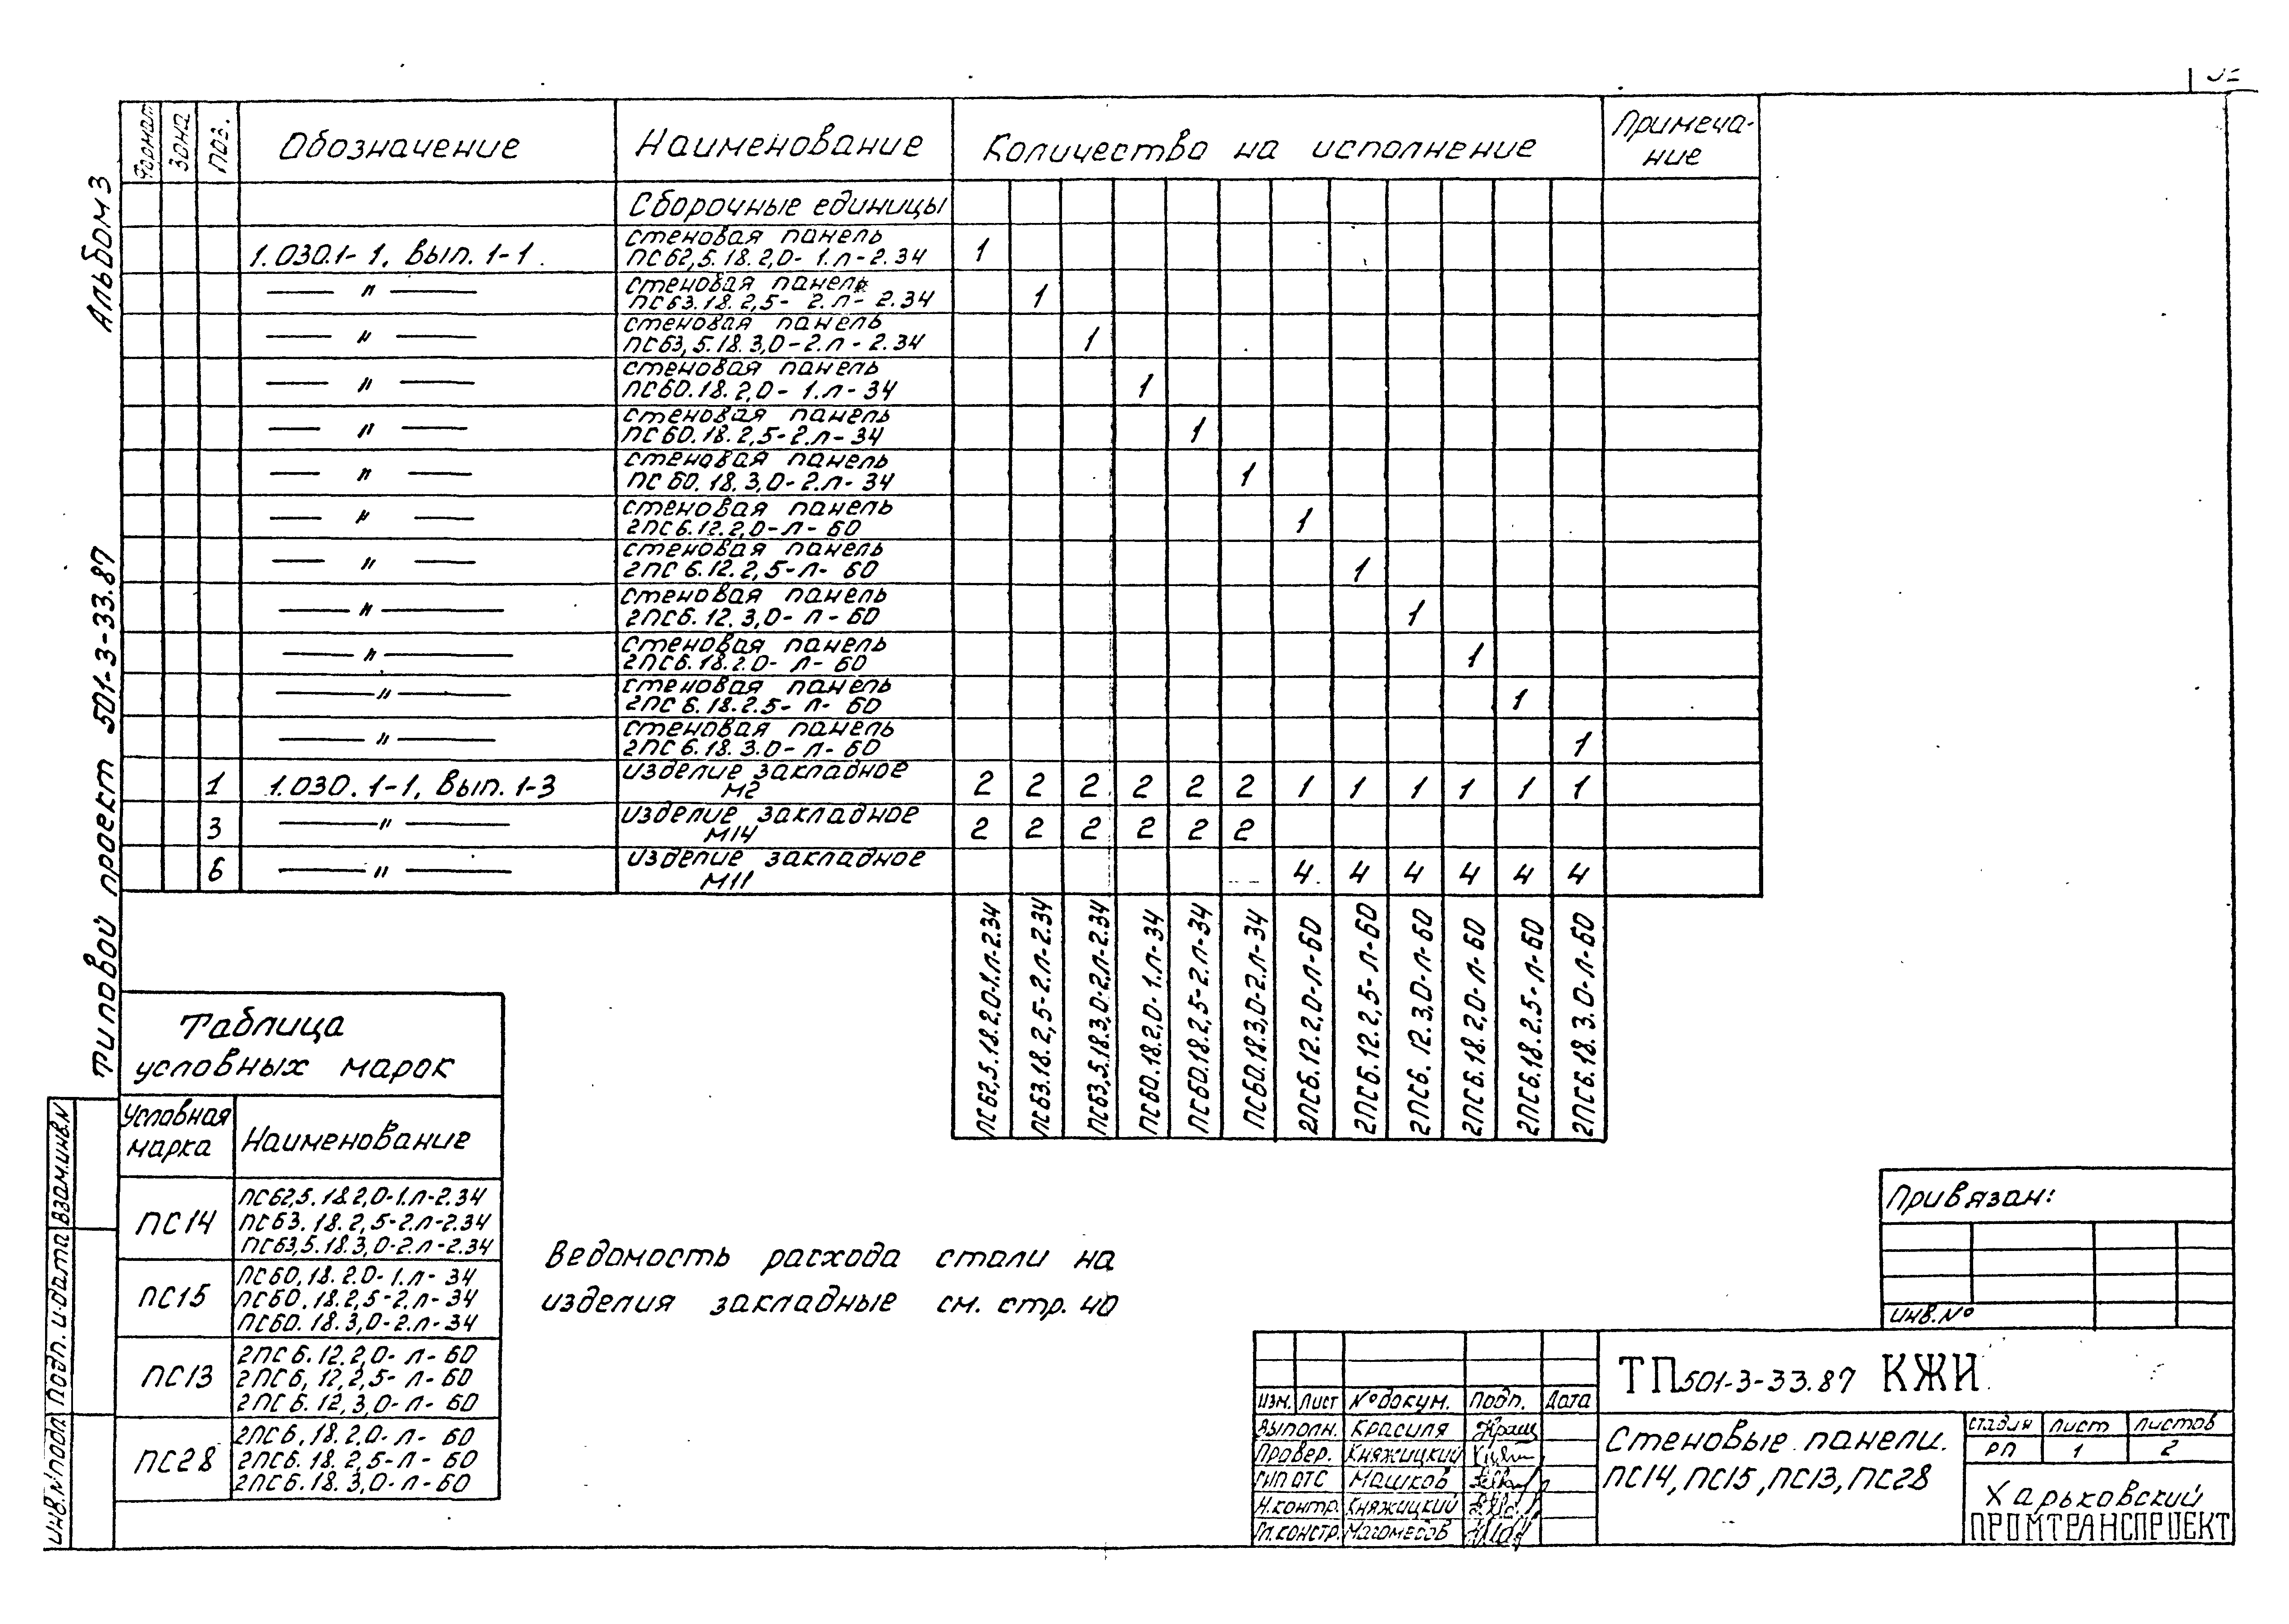 Альбом 3
Типовой проект 501-3-33.87
Формат Зона Поз. Обозначение Наименование Количество на исполнение Примеча-
ние
Сборочные единицы
1.030.1-1, вып. 1-1 стеновая панель
ПС62,5.18.2,0-1.л-2.34 1
— " — стеновая панель
ПС63.18.2,5-2.л-2.34 1
— " — стеновая панель
ПС63,5.18.3,0-2.л-2.34 1
— " — стеновая панель
ПС60.18.2,0-1.л-34 1
— " — стеновая панель
ПС60.18.2,5-2.л-34 1
— " — стеновая панель
ПС60.18.3,0-2.л-34 1
— " — стеновая панель
2ПС6.12.2,0-л-60 1
— " — стеновая панель
2ПС6.12.2,5-л-60 1
— " — стеновая панель
2ПС6.12.3,0-л-60 1
— " — стеновая панель
2ПС6.18.2.0-л-60 1
— " — стеновая панель
2ПС6.18.2.5-л-60 1
— " — стеновая панель
2ПС6.18.3.0-л-60 1
1 1.030.1-1, вып. 1-3 изделие закладное
М2 2 2 2 2 2 2 1 1 1 1 1 1
3 — " — изделие закладное
М14 2 2 2 2 2 2
6 — " — изделие закладное
М11 4 4 4 4 4 4
ПС62,5.18.2,0-1.л-2.34
ПС63.18.2,5-2.л-2.34
ПС63,5.18.3,0-2.л-2.34
ПС60.18.2,0-1.л-34
ПС60.18.2,5-2.л-34
ПС60.18.3,0-2.л-34
2ПС6.12.2,0-л-60
2ПС6.12.2,5-л-60
2ПС6.12.3,0-л-60
2ПС6.18.2,0-л-60
2ПС6.18.2.5-л-60
2ПС6.18.3.0-л-60
Таблица
условных марок
Условная
марка Наименование
ПС14 ПС62,5.18.2,0-1.л-2.34
ПС63.18.2,5-2.л-2.34
ПС63,5.18.3,0-2.л-2.34
ПС15 ПС60.18.2.0-1.л-34
ПС60.18.2,5-2.л-34
ПС60.18.3,0-2.л-34
ПС13 2ПС6.12.2,0-л-60
2ПС6,12,2,5-л-60
2ПС6.12,3,0-л-60
ПС28 2ПС6,18.2,0-л-60
2ПС6.18.2,5-л-60
2ПС6.18.3,0-л-60
Ведомость расхода стали на
изделия закладные см. стр. 40
Инв.№ подл.
Подп. и дата
Взам.инв.N
Привязан:
Инв.№
Изм. Лист № докум. Подп. Дата
Выполн. Красиля
Провер. Княжицкий
ГИП ОТС Машков
Н.контр. Княжицкий
Гл.констр. Магомедов
ТП 501-3-33.87 КЖИ
Стеновые панели.
ПС14, ПС15, ПС13, ПС28
Стадия Лист Листов
РП 1 2
Харьковский
ПРОМТРАНСПРОЕКТ